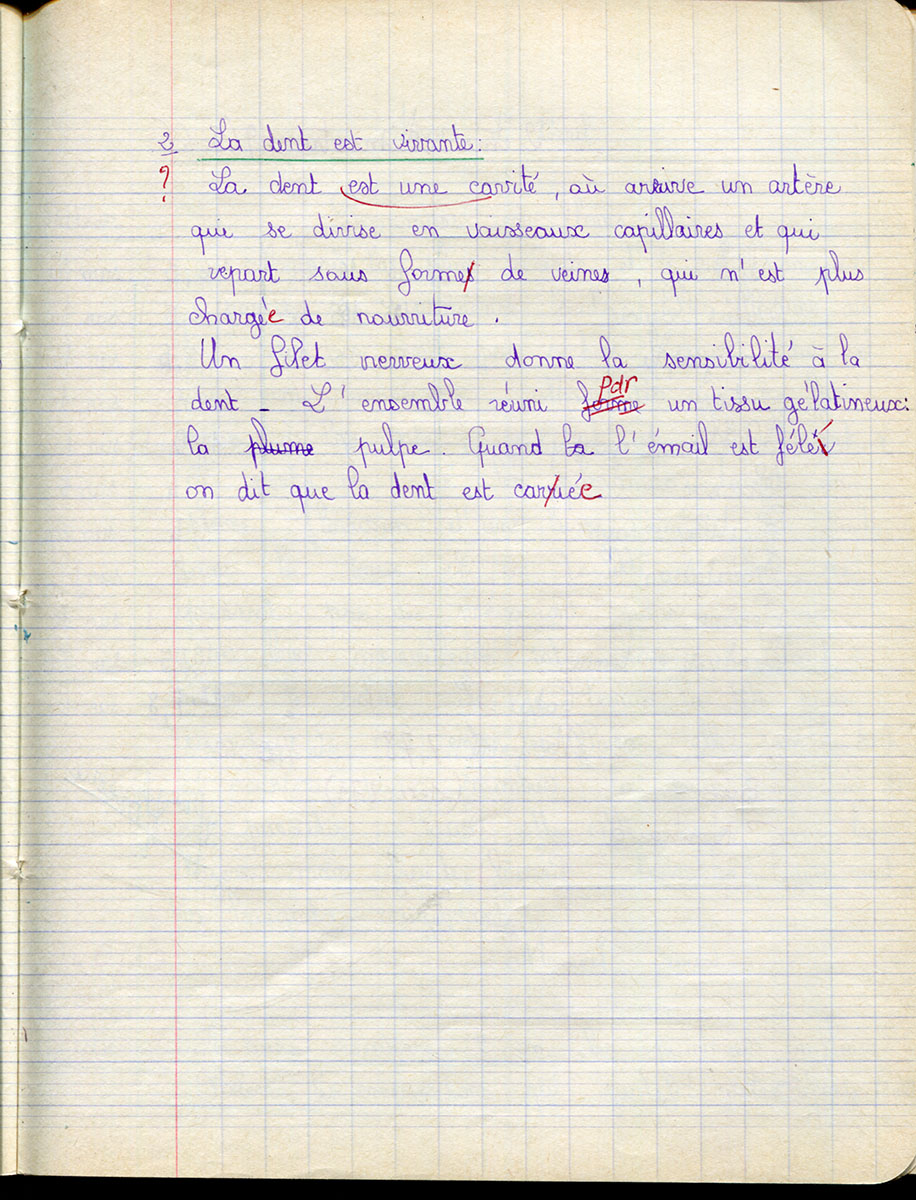 2 La dent est vivante:
? La dent est une cavité, où arrive un artère
qui se divise en vaisseaux capillaires et qui
repart sous formes de veines, qui n'est plus
chargée de nourriture.
Un filet nerveux donne la sensibilité à la
dent _ L'ensemble réuni forme par un tissu gélatineux:
la plume pulpe. Quand la l'émail est félé
on dit que la dent est carriée